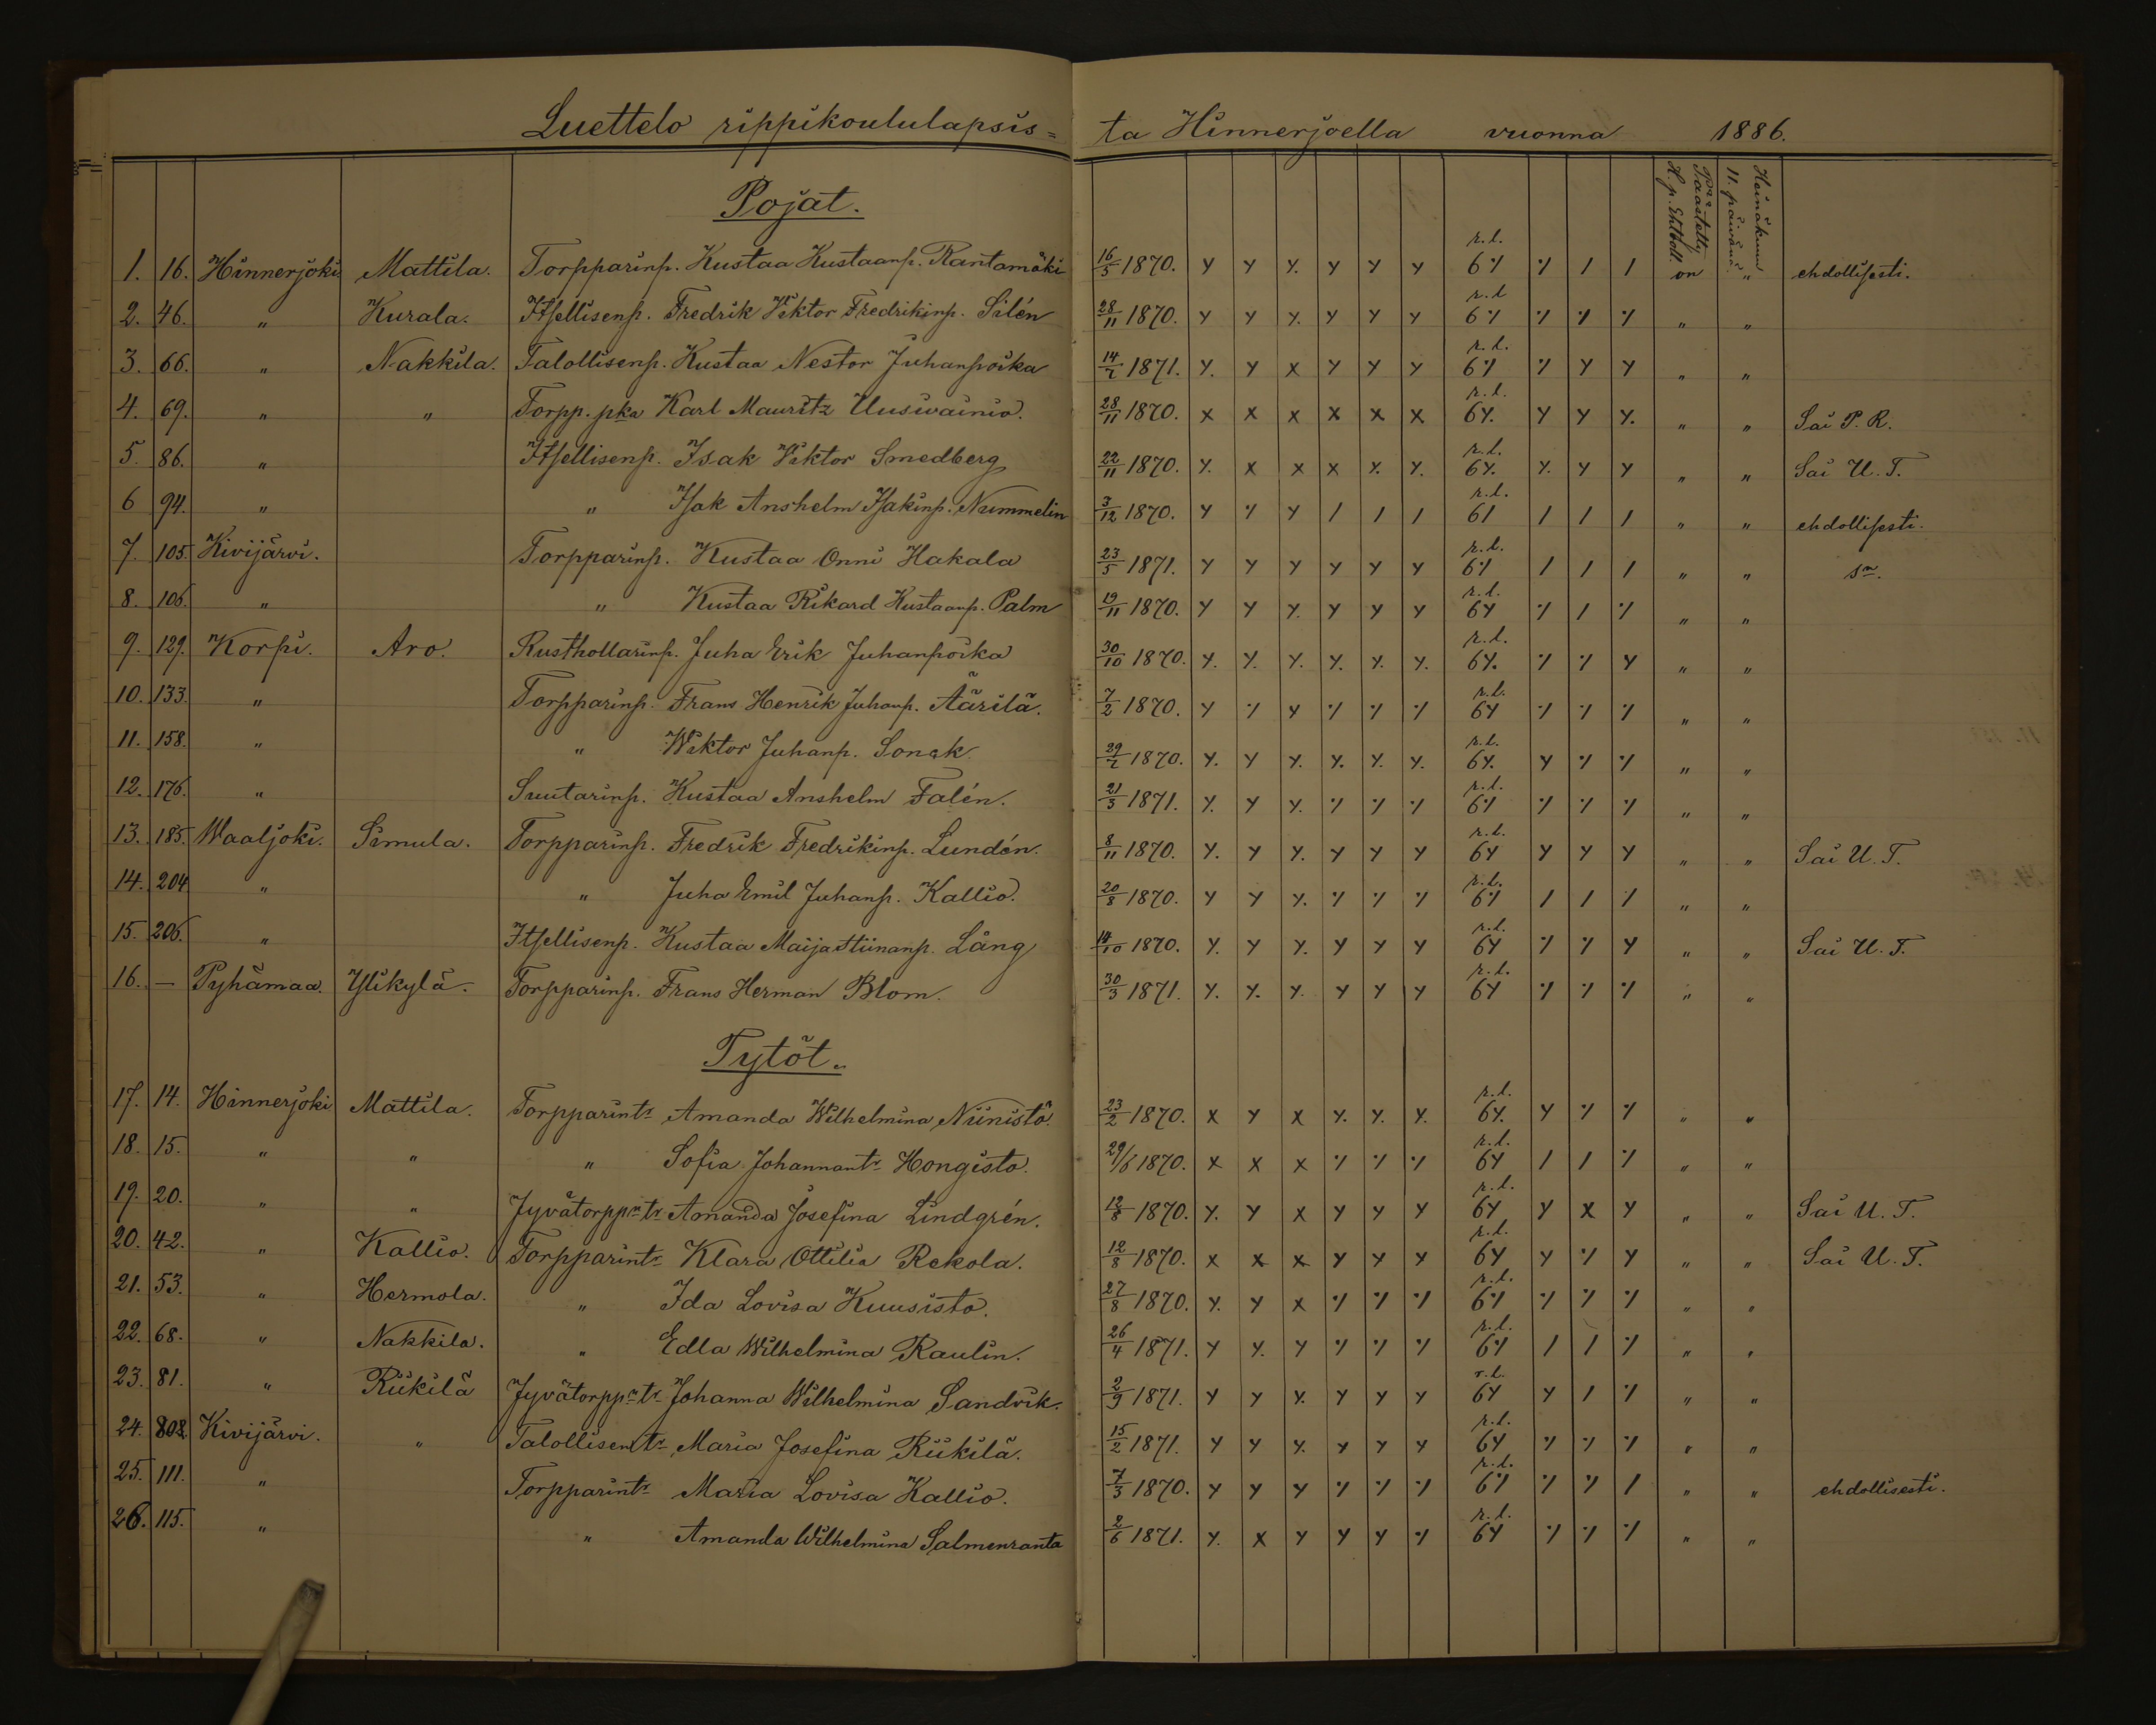 Luettelo rippikoululapsis=ta Hinnerjoella vuonna 1886.
Pojat.
H. p. Ehtooll. Päästetty
11. päivänä Heinäkuun
1. 16. Hinnerjoki Mattila. Torpparinp. Kustaa Kustaanp. Rantamäki 16/5 1870. r.l. 6 on " ehdollisesti.
2. 46. " Kurala. Itsellisenp. Fredrik Viktor Fredrikinp. Silén 28/11 1870. r.l. 6 " "
3. 66. " Nakkila. Talollisenp. Kustaa Nestor Juhanpoika 14/2 1871. r.l. 6 " "
4. 69. " " Torpp. pka Karl Mauritz Uusivainio. 28/11 1870. x x x x x x r.l. 6 " " Sai P. R.
5. 86. " Itsellisenp. Isak Viktor Smedberg 22/11 1870. r.l. 6 " " Sai U. T.
6 94. " " Isak Anshelm Isakinp. Nummelin 3/12 1870. r.l. 6 " " ehdollisesti.
7. 105. Kivijärvi. Torpparinp. Kustaa Onni Hakala 23/5 1871. r.l. 6 " "
8. 106. " " Kustaa Rikard Kustaanp. Palm 19/11 1870. r.l. 6 " "
9. 129. Korpi. Aro. Rusthollarinp. Juha Erik Juhanpoika 30/10 1870. r.l. 6 " "
10. 133. " Torpparinp. Frans Henrik Juhanp. Äärilä. 7/2 1870. r.l. 6 " "
11. 158. " " Wiktor Juhanp. Sonck. 29/2 1870. r.l. 6 " "
12. 176. " Suutarinp. Kustaa Anshelm Falén. 21/3 1871. r.l. 6 " "
13. 185. Waaljoki. Simula. Torpparinp. Fredrik Fredrikinp. Lundén. 8/11 1870. r.l. 6 " " Sai U. T.
14. 204 " " Juha Emil Juhanp. Kallio. 20/8 1870. r.l. 6 " "
15. 206. " Itsellisenp. Kustaa Maija Stiinanp. Lång 14/10 1870. r.l. 6 " " Sai U. T.
16. — Pyhämaa. Ylikylä. Torpparinp. Frans Herman Blom. 30/3 1871. r.l. 6 " "
Tytöt.
17. 14. Hinnerjoki Mattila. Torpparintr Amanda Wilhelmina Niinistö. 23/2 1870. r.l. 6 " "
18. 15. " " " Sofia Johannantr Hongisto. 29/6 1870. r.l. 6 " "
19. 20. " " Jyvätorpp:n tr Amanda Josefina Lindgrén. 12/8 1870. r.l. 6 " " Sai U. T.
20. 42. " Kallio. Torpparintr Klara Ottilia Rekola. 12/8 1870. r.l. 6 " " Sai U. T.
21. 53. " Hermola. " Ida Lovisa Kuusisto. 27/8 1870. r.l. 6 " "
22. 68. " Nakkila. " Edla Wilhelmina Raulin. 26/4 1871. r.l. 6 " "
23. 81. " Riikilä Jyvätorpp:n tr Johanna Wilhelmina Sandvik. 2/9 1871. r.l. 6 " "
24. Kivijärvi. " Talollisentr Maria Josefina Riikilä. 15/2 1871. r.l. 6 " "
25. 111. " Torpparintr Maria Lovisa Kallio. 7/3 1870. r.l. 6 " " ehdollisesti.
26. 115. " " Amanda Wilhelmina Salmenranta 2/6 1871. r.l. 6 " "